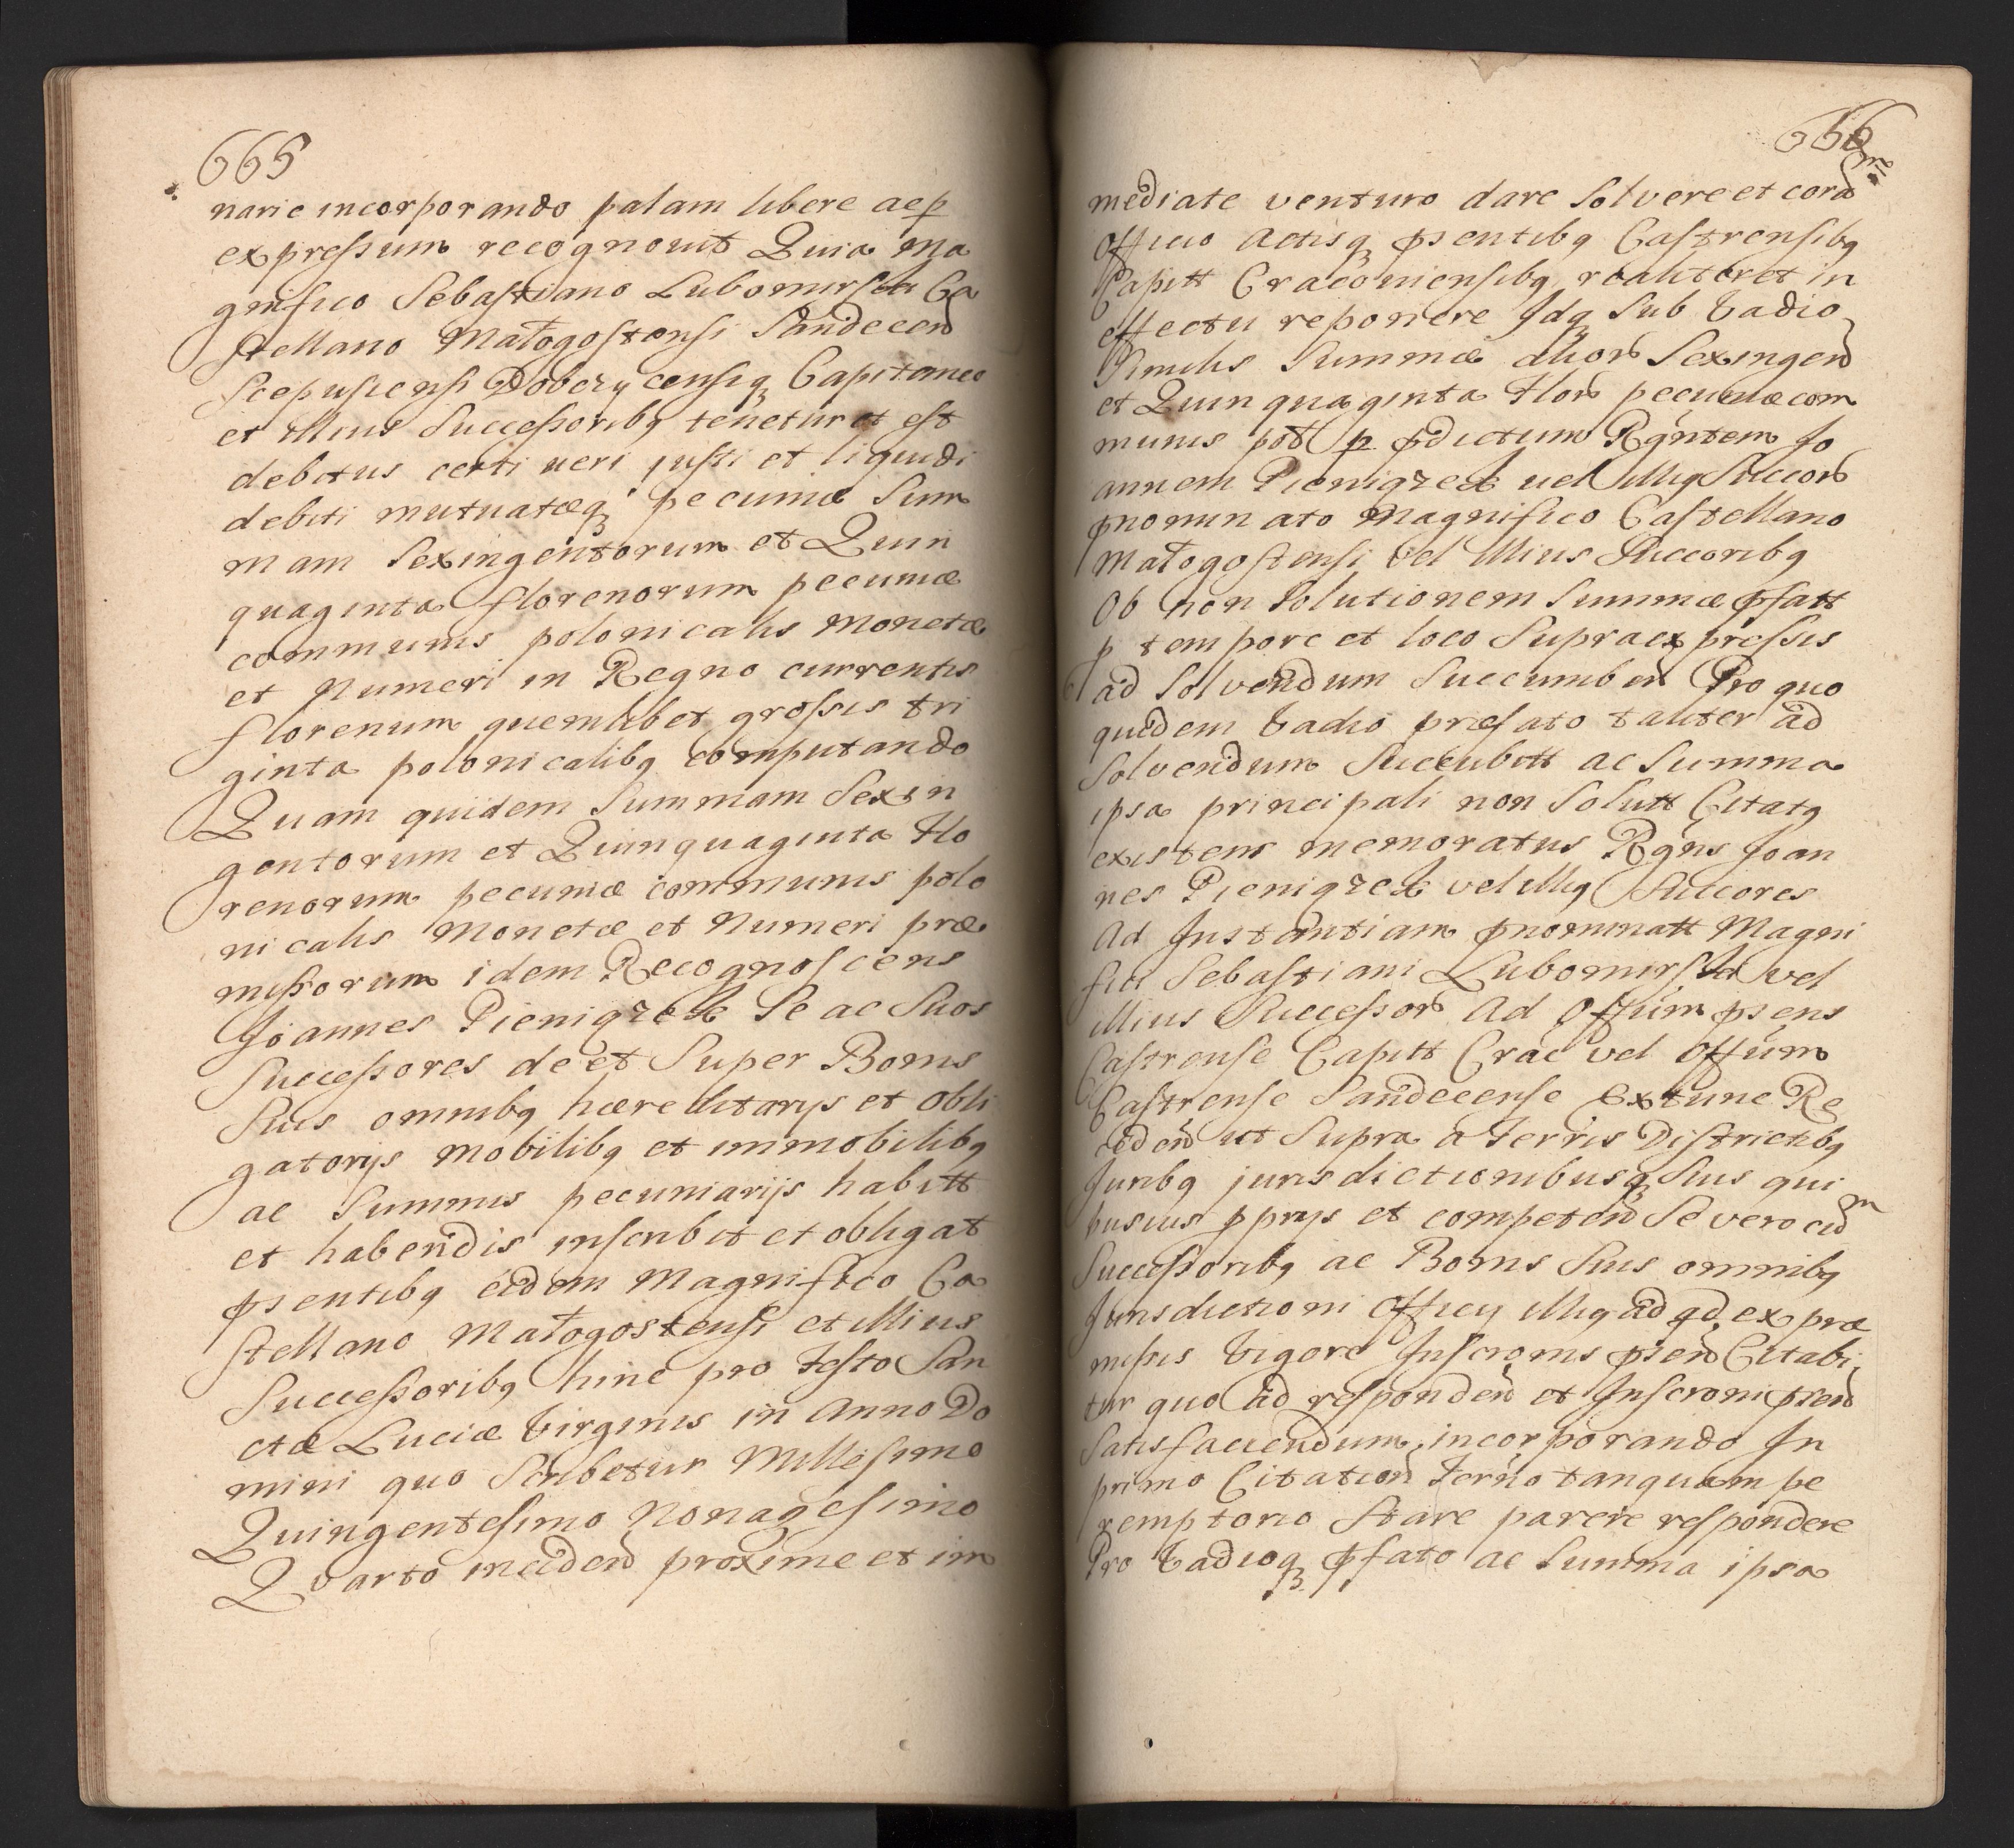 665
narie incorporando palam libere ac p
expressum recognovit Quia Ma
gnifico Sebastiano Lubomirski Ca
stellano Małogostensi Sandecen
Scepusiensi Dobczycensiq Capitaneo
et illius Successoribq tenetur et est
debitus certi veri justi et liquidi
debiti mutuatæq pecuniæ Sum
mam Sexingentorum et Quin
quaginta florenorum pecuniæ
communis polonicalis Monetæ
et Numeri in Regno currentis
florenum quemlibet grossis tri
ginta polonicalibq computando
Quam quidem Summam Sexin
gentorum et Quinquaginta Flo
renorum pecuniæ communis polo
nicalis Monetæ et Numeri præ
missorum idem Recognoscens
Joannes Pieniązek Se ac Suos
Successores de et Super Bonis
Suis omnibq hæreditarys et obli
gatorys mobilibq et immobilibq
ac Summis pecuniarijs habitt
et habendis inscribit et obligat
psentibq eidem Magnifico Ca
stellano Małogostensi et illius
Successoribq hinc pro Festo San
ctæ Luciæ Virginis in Anno Do
mini quo Scribetur Millesimo
Quingentesimo Nonagesimo
Qvarto inciden proxime et im
666
mediate venturo dare Solvere et cora
m
Officio Actisq psentibq Castrensibq
Capitt Cracoviensibq realiter et in
effectu reponere Idq Sub Vadio
Similis Summæ alior Sexingen
et Quinquaginta Flor pecuniæ com
munis pol p pdictum Rgntem Jo
annem Pieniązek vel illiq Succor
pnominato Magnifico Castellano
Małogostensi vel illius Succoribq
Ob non Solutionem Summæ pfatt
p tempore et loco Supraexpressis
ad Solvendum Succumben Pro quo
quidem Vadio præfato taliter ad
Solvendum Succubitt ac Summa
ipsa principali non Solutt Citatq
existens memoratus Rgns Joan
nes Pieniązek vel illiq Succores
Ad Instantiam pnominatt Magni
fici Sebastiani Lubomirski vel
illius Successor Ad Offum psens
Castrense Capitt Crac vel Offum
Castrense Sandecense Extunc Re
ceden ut Supra a Terris Districtibq
Juribq jurisdictionibusq Suis qui
busius pprys et competen Se vero cu
m
Successoribq ac Bonis Suis omnibq
Jurisdictioni Officy illiq ad qd ex præ
missis Vigore Inscronis psen Citabi
tur quo ad responden et Inscroni psen
Satisfaciendum incorporando In
primo Citation Terno tanquam pe
remptorio Stare parere respondere
Pro Vadioq pfato ac Summa ipsa